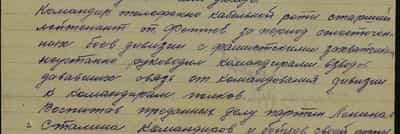 Командир телефонно кабельной роты старший
лейтенант от фонтов за период ожесточен-
ных боев дивизии с фашистскими захватчи
неустанно руководил командирами взводов
дававших связь от командования дивизии
к командирам полков.
Воспитав преданных делу партии Ленина-
Сталина командиров и бойцов своей роты